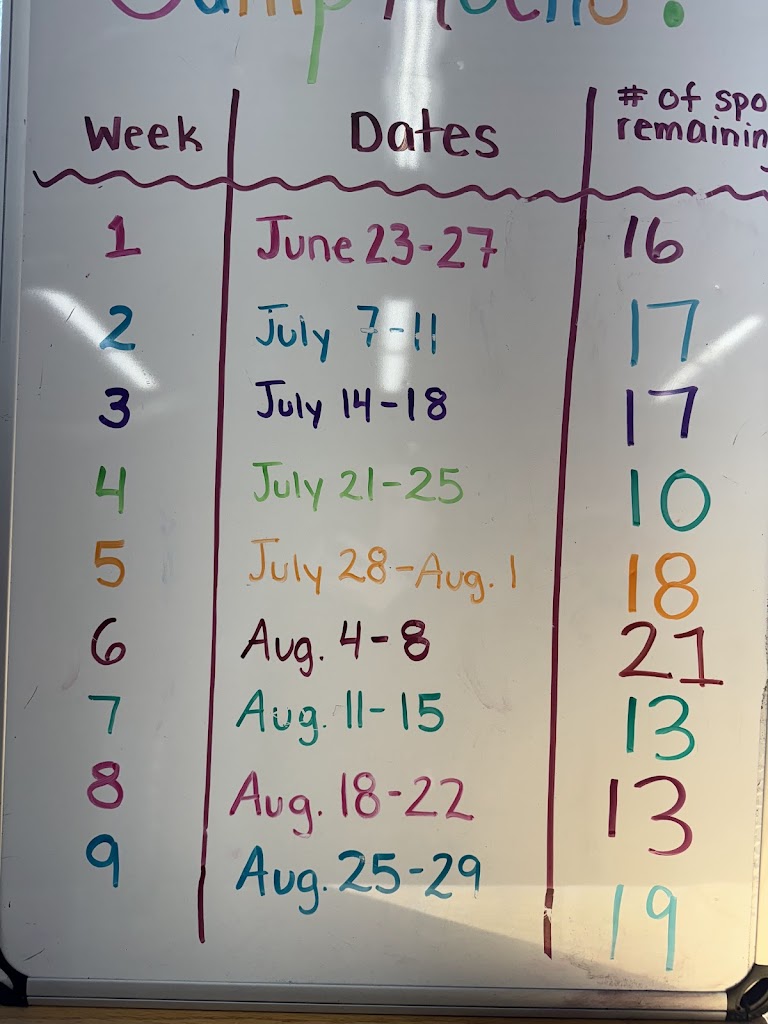 Camp
Week Dates # of spo
remainin
1 June 23-27 16
2 July 7-11 17
3 July 14-18 17
4 July 21-25 10
5 July 28-Aug. 1 18
6 Aug. 4-8 21
7 Aug. 11-15 13
8 Aug. 18-22 13
9 Aug. 25-29 19